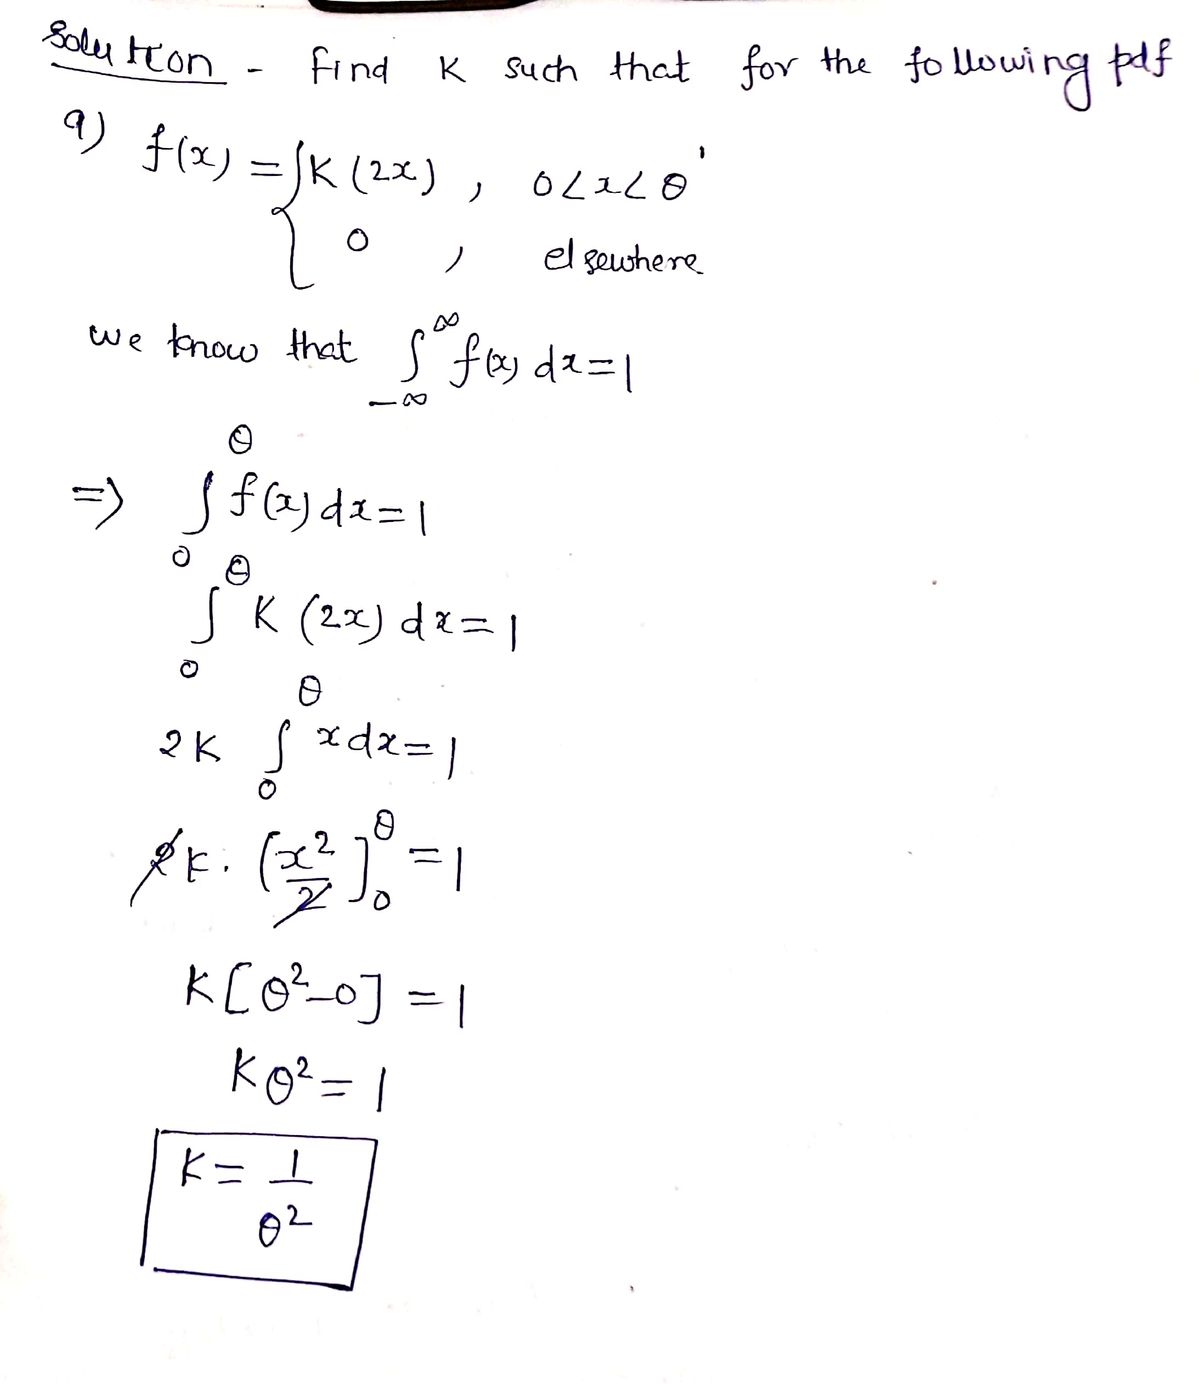 Solution - Find K such that for the following pdf
a) f(x) = { K (2x) , 0<x<θ
0 , elsewhere
we know that ∫_{-∞}^{∞} f(x) dx = 1
=> ∫_0^θ f(x) dx = 1
∫_0^θ K (2x) dx = 1
2K ∫_0^θ x dx = 1
2K. (x²/2]_0^θ = 1
K[θ²-0] = 1
Kθ² = 1
K = 1/θ²